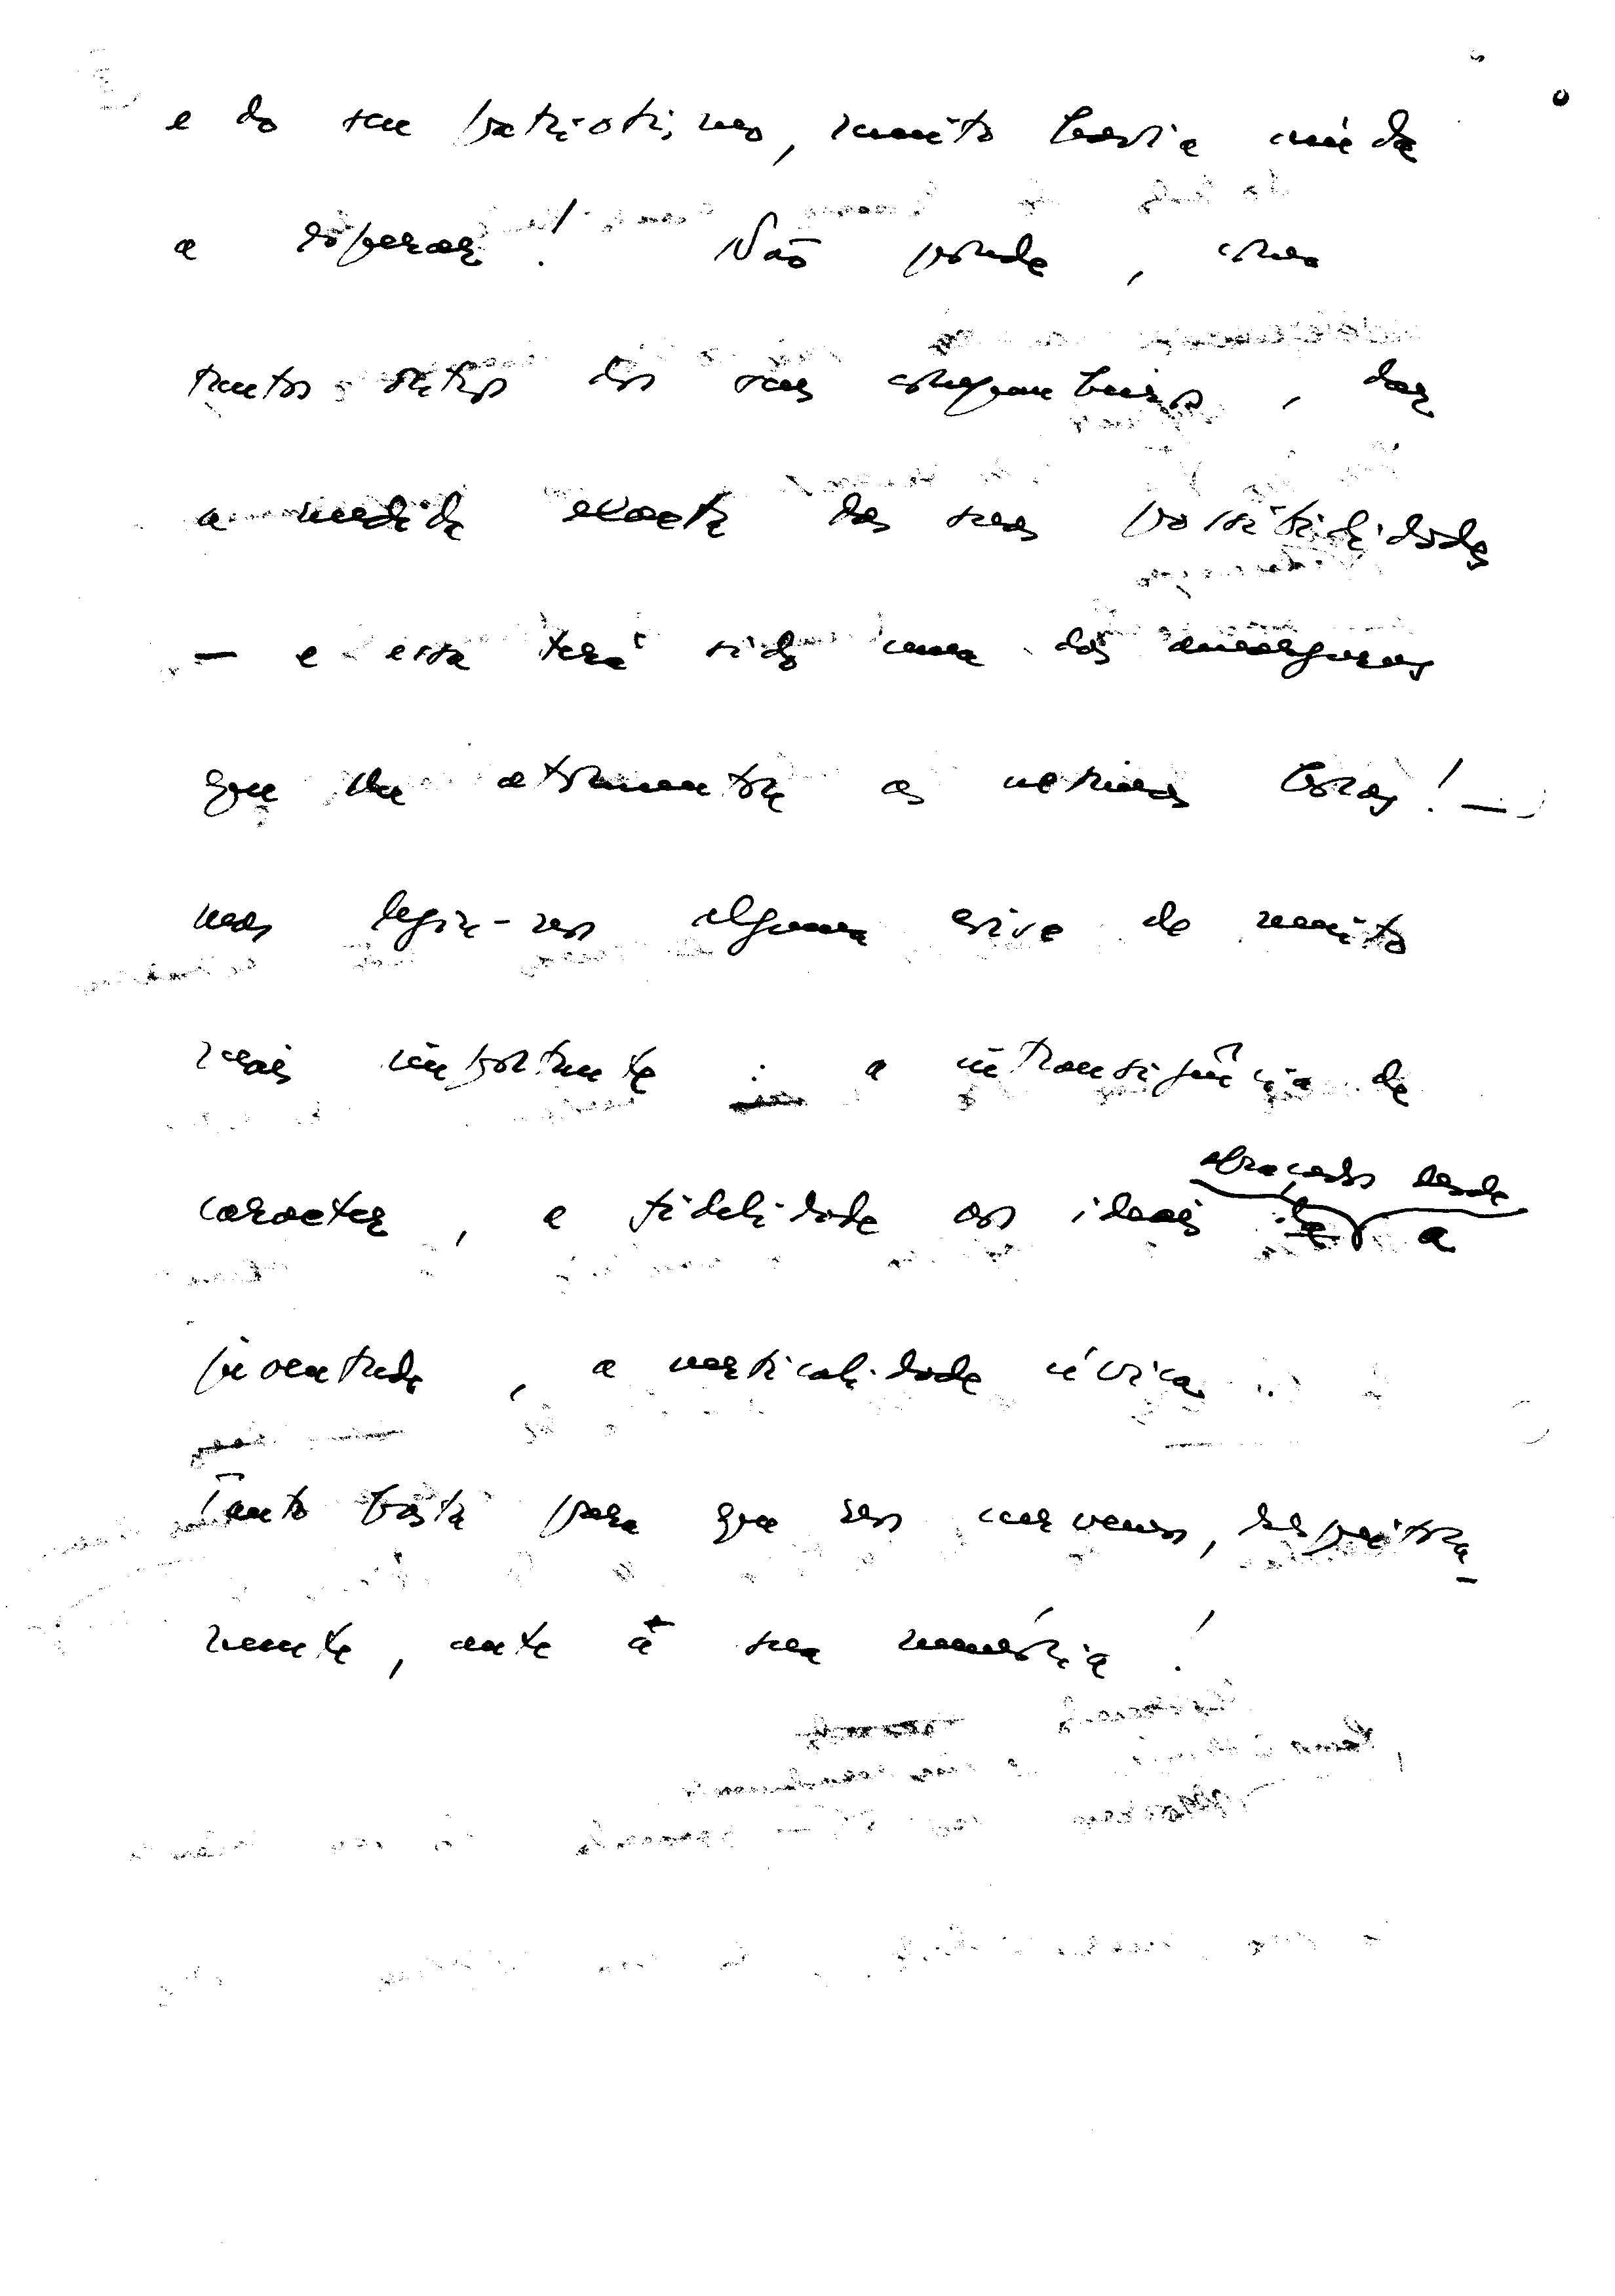 e do seu patriotismo, muito havia ainda
a esperar! Não poude, como
tantos outros dos seus companheiros, dar
a medida exacta das suas possibilidades
— e essa terá sido uma das amarguras
que lhe atormentou as últimas horas! —
mas legou-nos alguma coisa de muito
mais importante: a intransigência de
caracter, a fidelidade aos ideais
abraçados desde a
juventude, a verticalidade cívica.
Tanto basta para que nos curvemos, respeitosa-
mente, ante a sua memória!